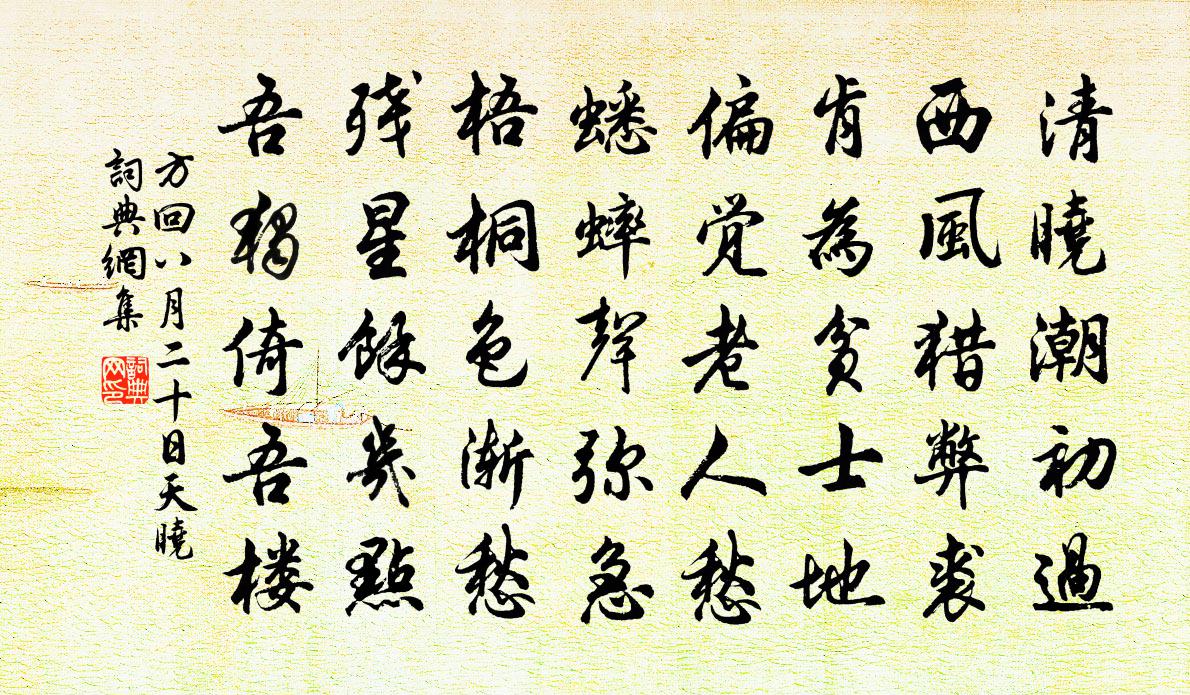 清曉潮初過
西風猎弊裘
肯為貧士地
偏觉老人愁
蟋蟀聲弥急
梧桐色渐愁
残星餘幾點
吾獨倚吾楼
方回八月二十日天曉
詞典網集
詞典网印